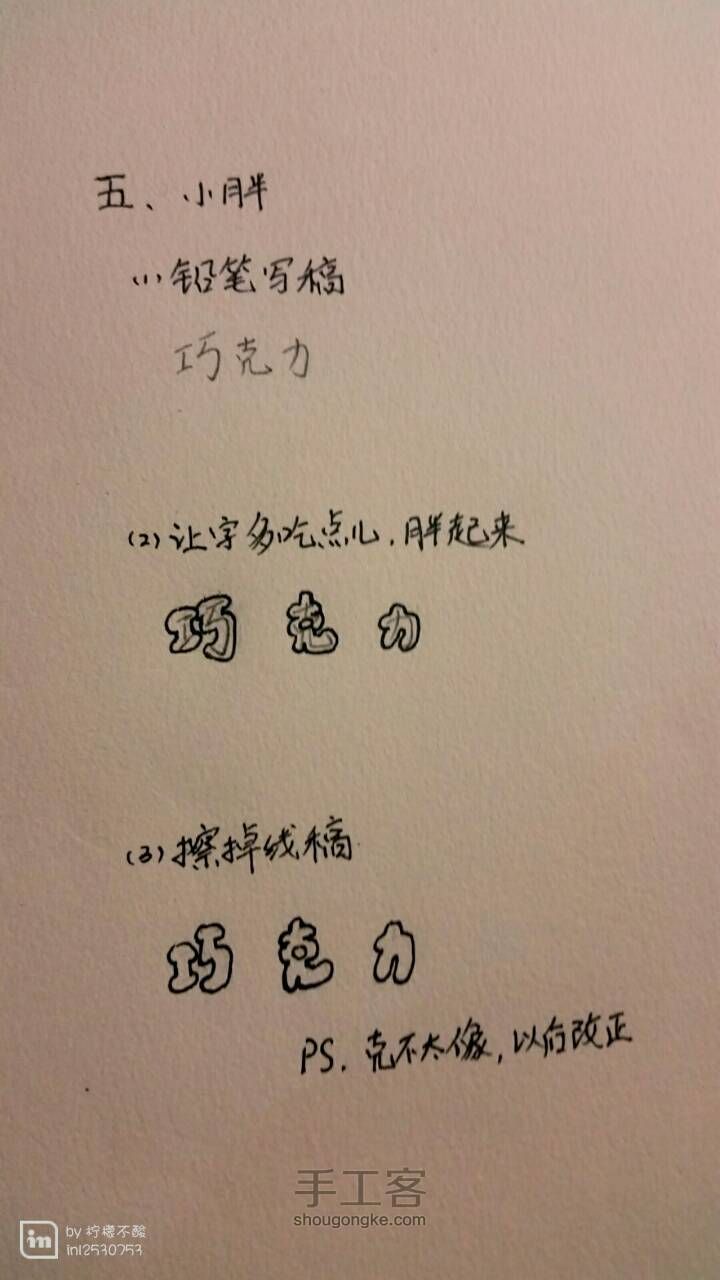 五、小胖
(1)铅笔写稿
巧克力
(2)让字多吃点儿,胖起来
巧克力
(3)擦掉线稿
巧克力
PS.克不太像,以后改正
手工客
shougongke.com
in by 柠檬不酸
in12530253